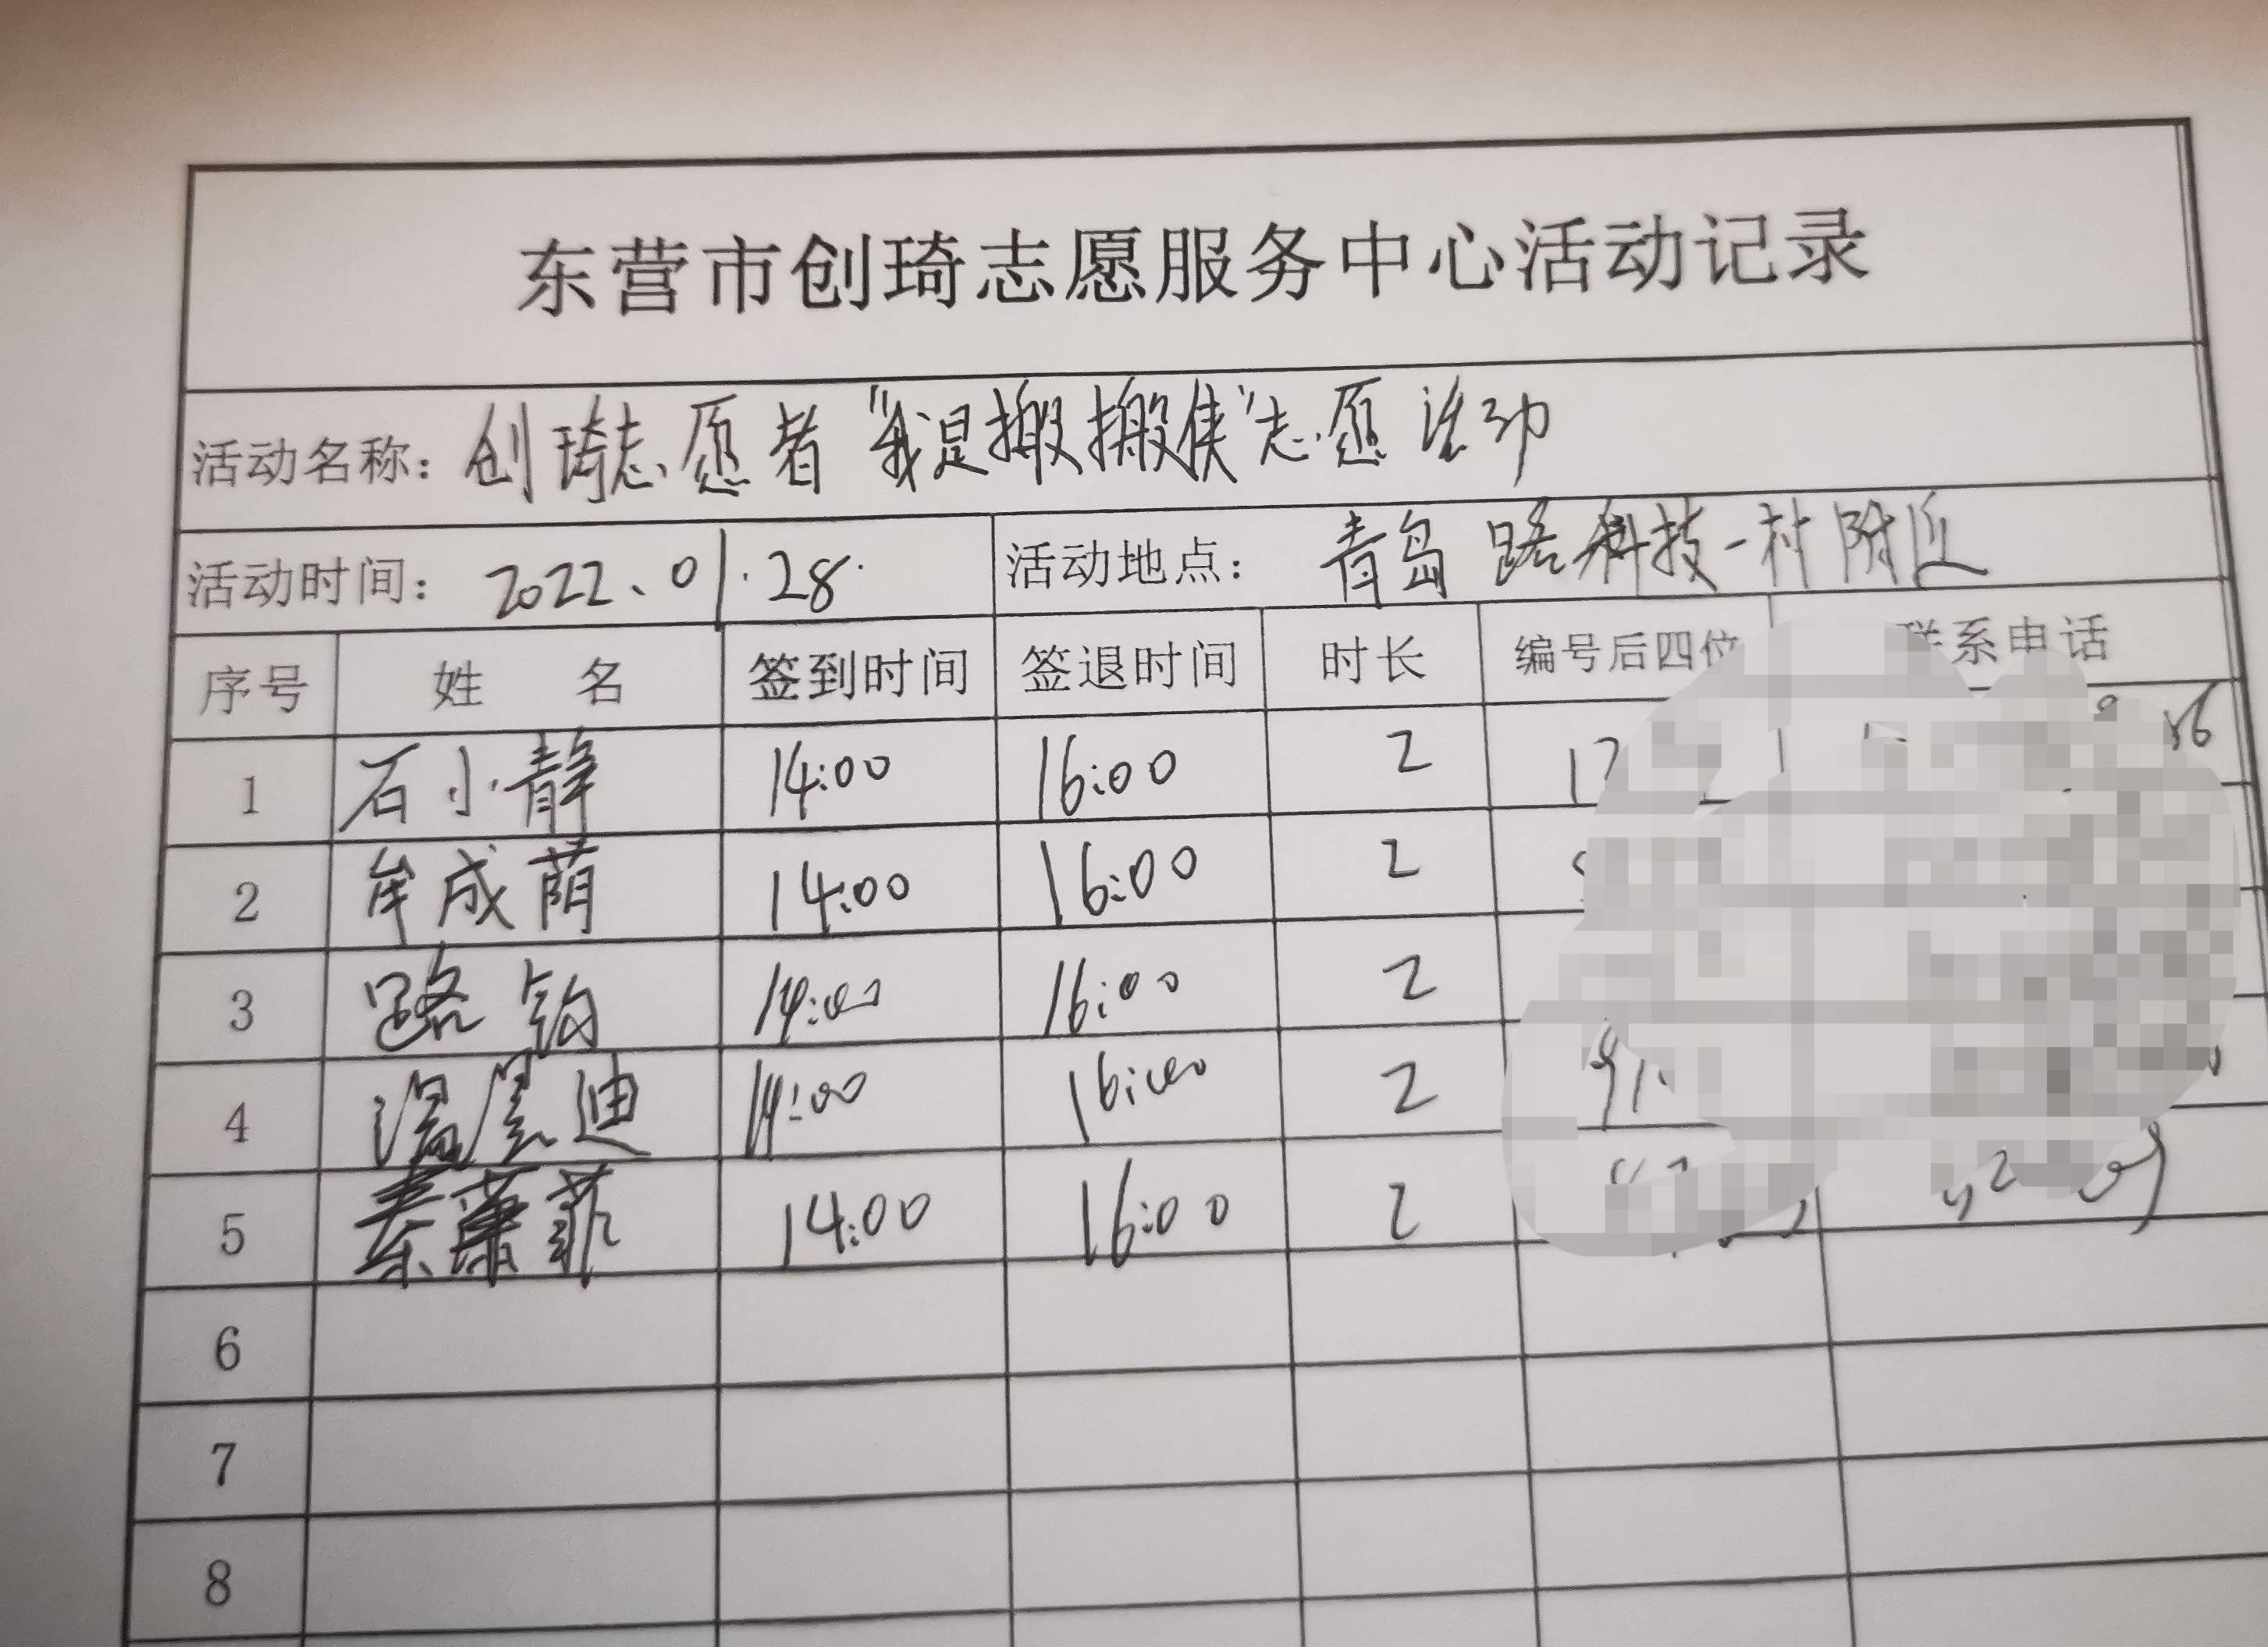 东营市创琦志愿服务中心活动记录
活动名称：创琦志愿者“我是搬搬侠”志愿活动
活动时间：2022、01.28. 活动地点：青岛路科技一村附近
序号 姓 名 签到时间 签退时间 时长 编号后四位 联系电话
1 石小静 14:00 16:00 2 17
2 牟成荫 14:00 16:00 2
3 路钧 14:00 16:00 2
4 温景迪 14:00 16:00 2 91
5 秦萧菲 14:00 16:00 2
6
7
8